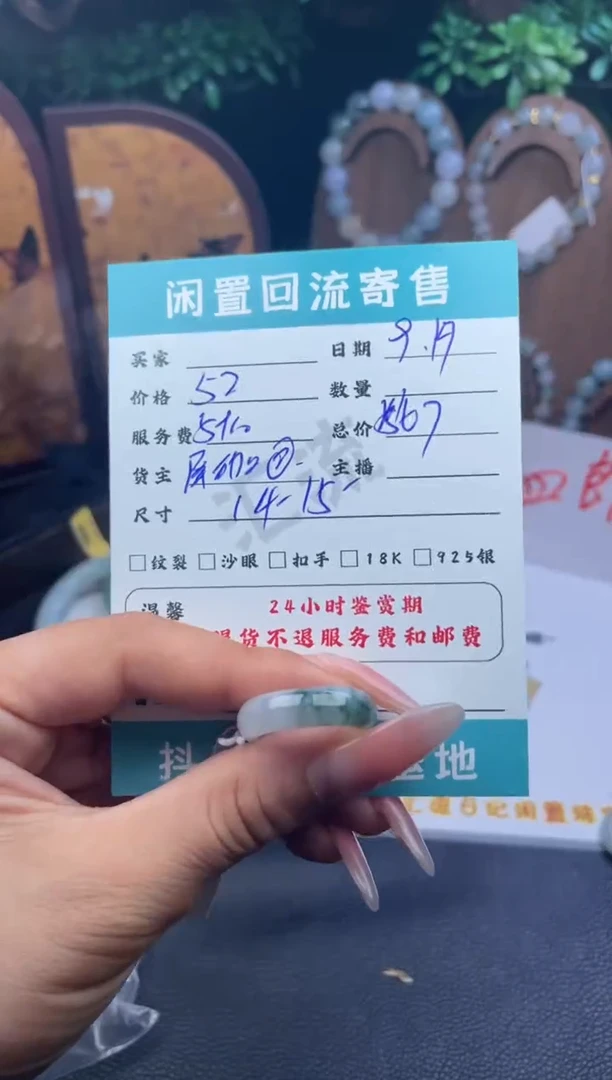 闲置回流寄售
买家 日期 9.19
价格 52 数量
服务费 总价 567
货主 主播
尺寸 14-15
□纹裂 □沙眼 □扣手 □18K □925银
温馨 24小时鉴赏期
退货不退服务费和邮费
抖 基地
汇流
四郎
日记闲置